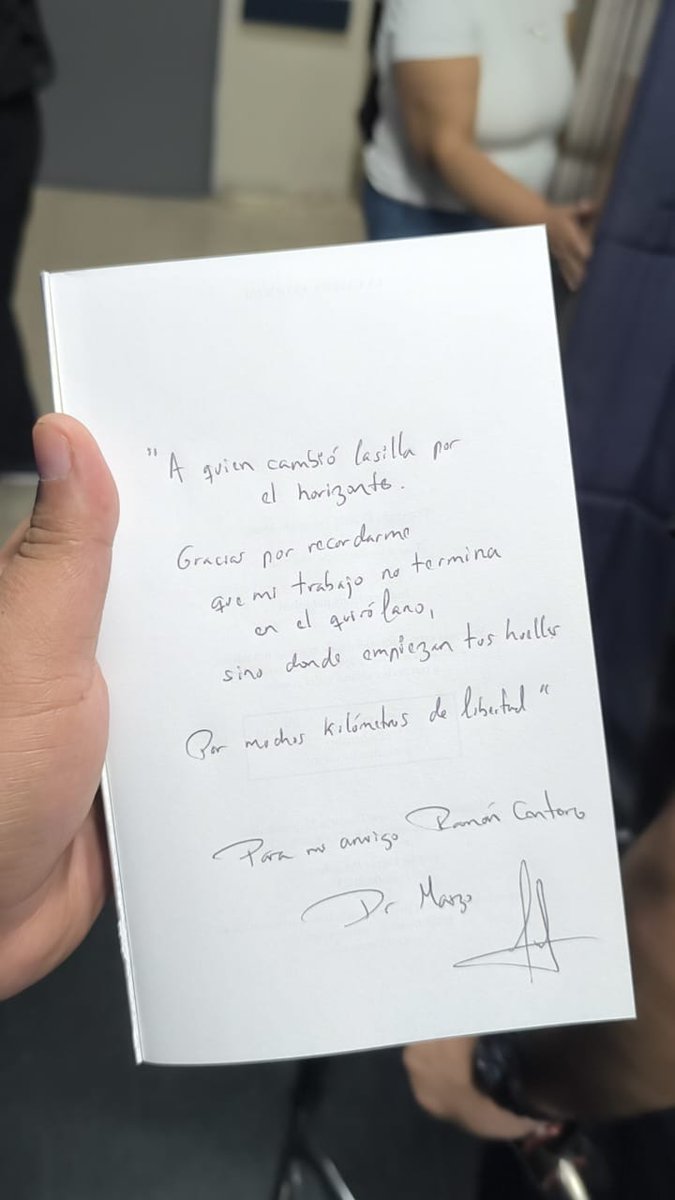 "A quien cambió la silla por
el horizonte.
Gracias por recordarme
que mi trabajo no termina
en el quirófano,
sino donde empiezan tus huellas
Por muchos kilómetros de libertad"
Para mi amigo Ramón Cantero
Dr Marzo